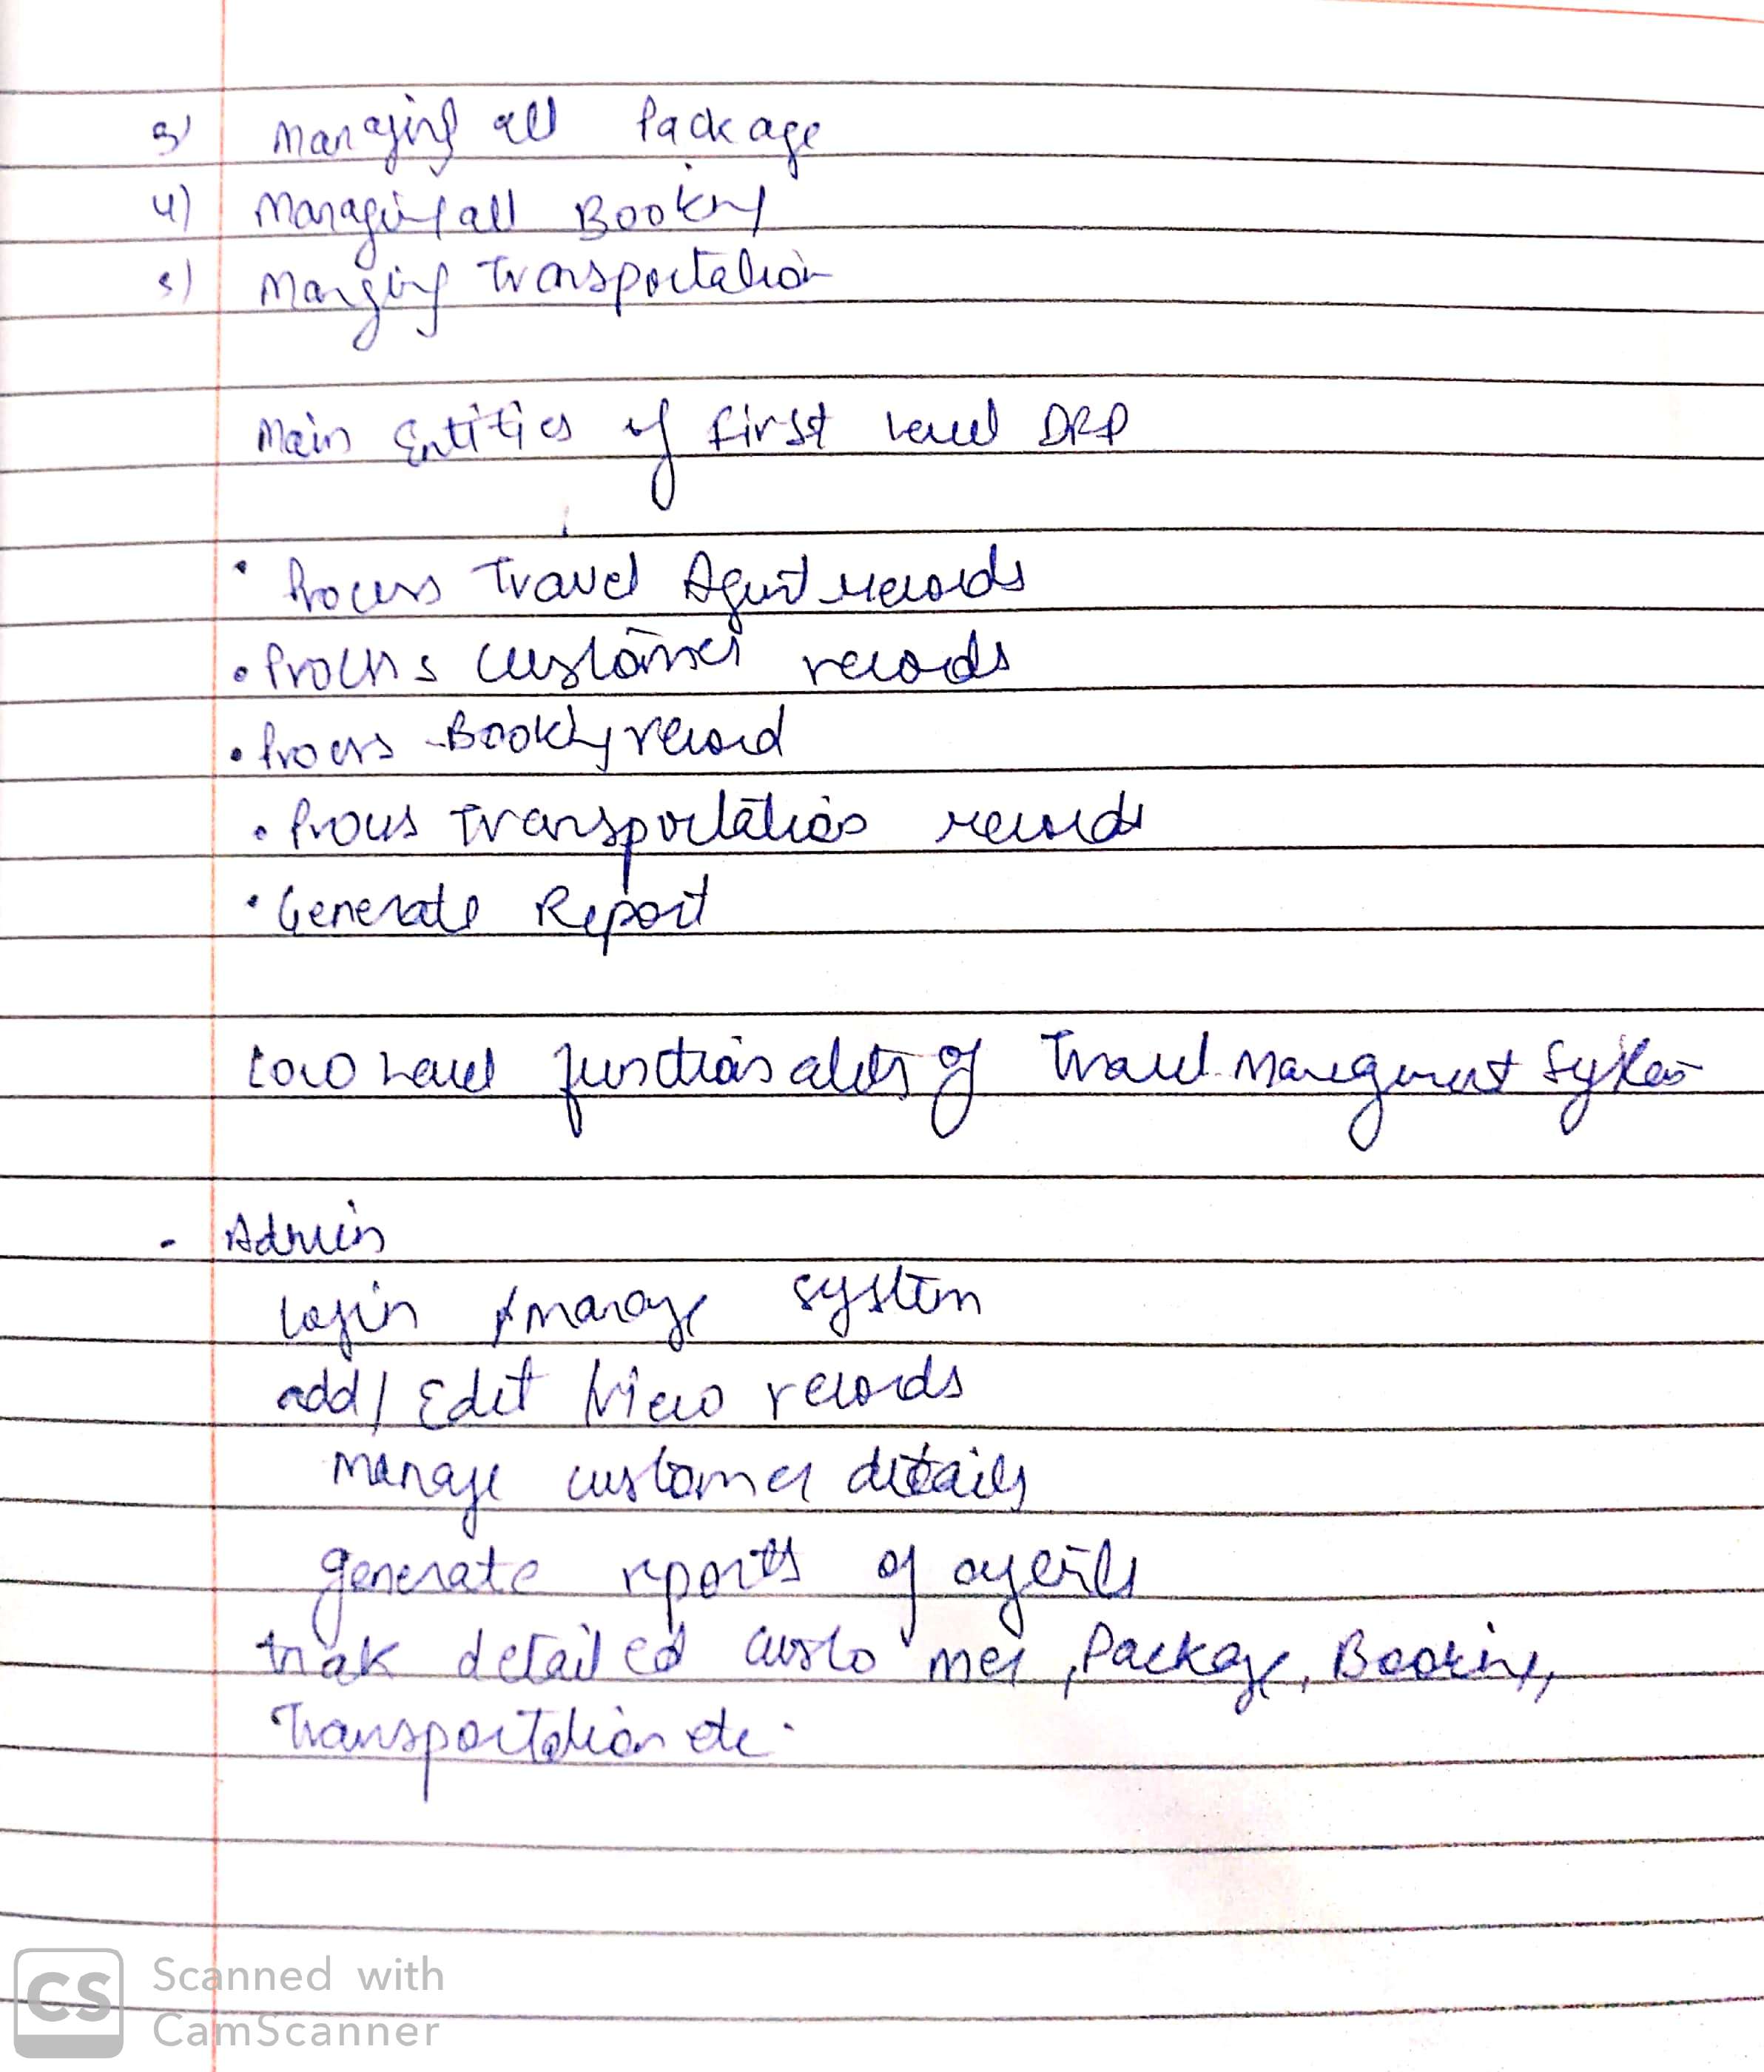 3) Managing all Package
4) Managing all Booking
5) Manging Transportation
Main Entities of First Level DFD
• Process Travel Agent records
• Process Customer records
• Process Booking record
• Process Transportation records
• Generate Report
Low Level functionalities of Travel Management System
- Admin
Login & manage system
add / Edit / View records
manage customer details
generate reports of agents
trak detailed customer, Package, Booking,
Transportation etc.
CS
Scanned with
CamScanner